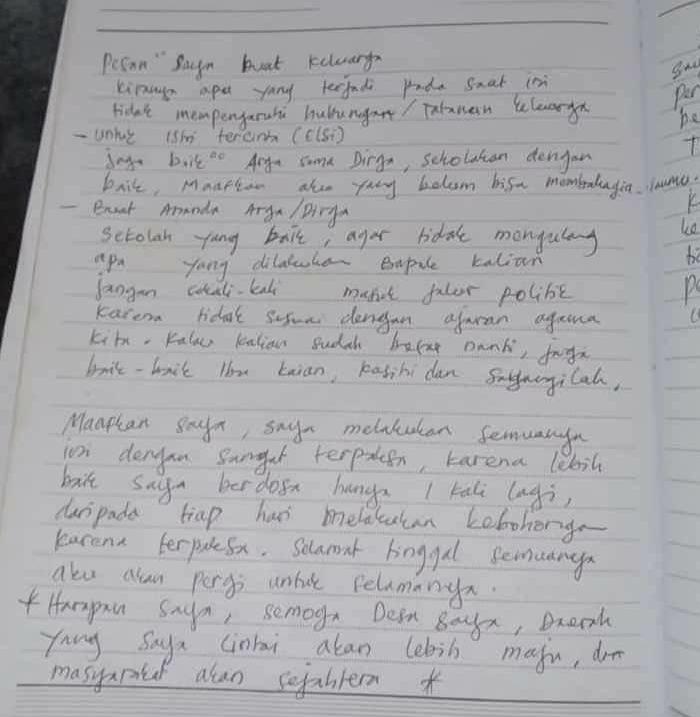 Pesan" Saya buat keluarga
kiranya apa yang terjadi pada saat ini
tidak mempengaruhi hubungan / Tatanan keluarga
- untuk istri tercinta (Elsi)
jaga baik" Arga sama Dirga, sekolakan dengan
baik, Maafkan aku yang belum bisa membahagia-kanmu.
- Buat Ananda Arga/Dirga
Sekolah yang baik, agar tidak mengulang
apa yang dilakukan Bapak kalian
jangan sekali-kali masuk jalur politik
karena tidak sesuai dengan ajaran agama
kita. Kalau kalian sudah besar nanti, jaga
baik-baik Ibu kaian, kasihi dan sayangilah.
Maafkan saya, saya melakukan semuanya
ini dengan sangat terpaksa, karena lebih
baik saya berdosa hanya 1 kali lagi,
daripada tiap hari melakukan kebohonga
karena terpaksa. Selamat tinggal semuanya
aku akan pergi untuk selamanya.
* Harapan saya, semoga Desa saya, Daerah
yang saya cintai akan lebih maju, dan
masyarakat akan sejahtera *